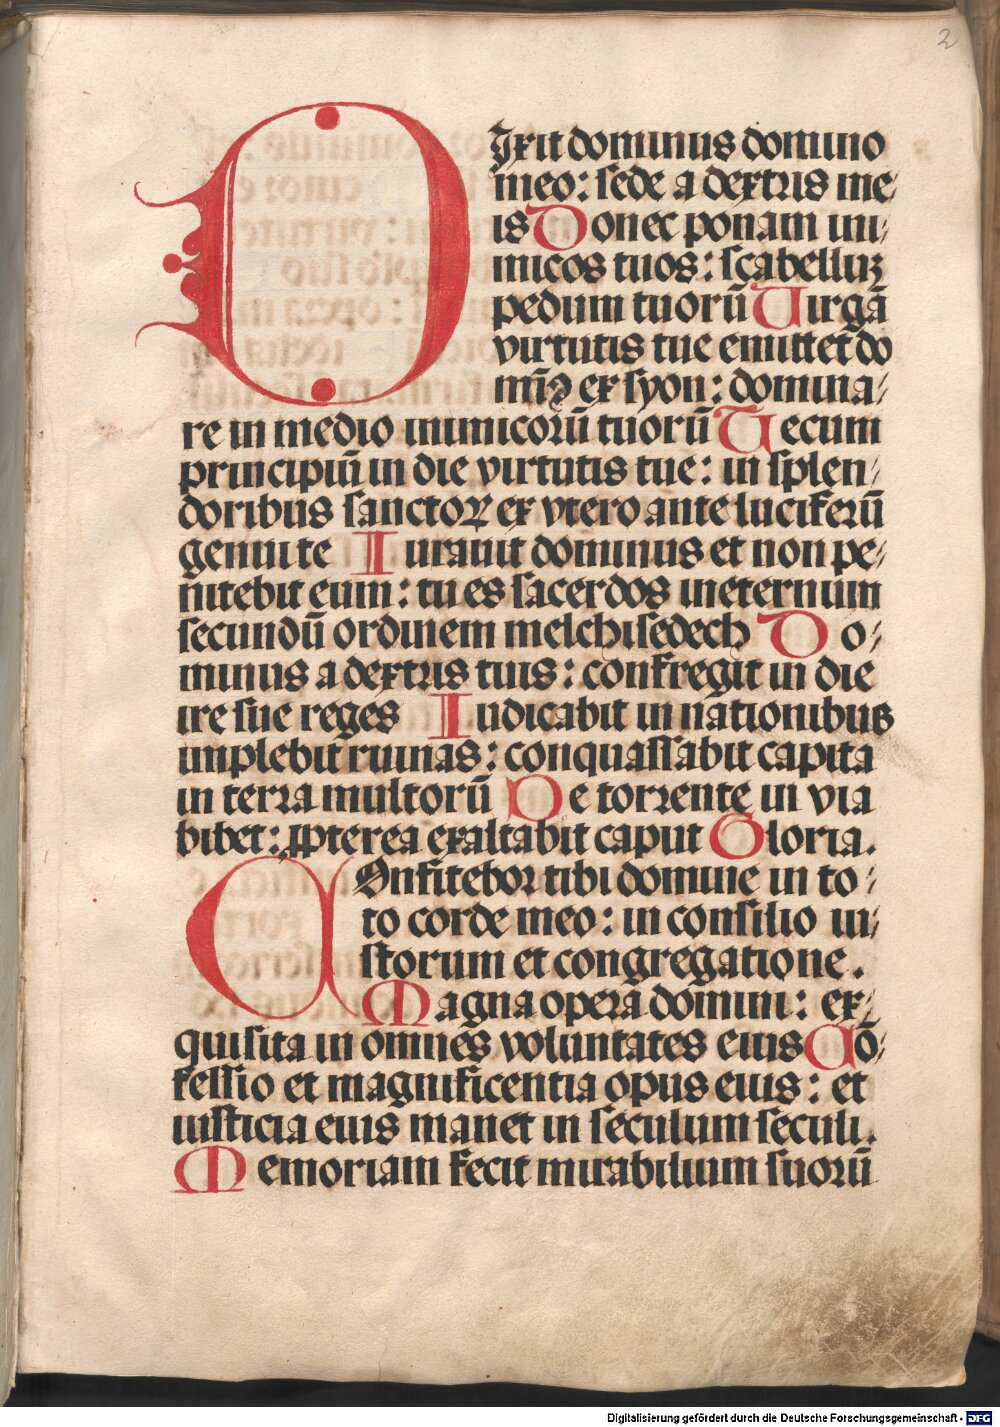 2
Dixit dominus domino
meo: sede a dextris me/
is Donec ponam ini/
micos tuos: scabellūꝫ
pedum tuorū Uirgā
virtutis tue emittet do
minꝯ ex syon: domina/
re in medio inimicorū tuorū Tecum
principiū in die virtutis tue: in splen/
doribus sanctoꝝ ex vtero ante luciferū
genui te Iurauit dominus et non pe/
nitebit eum: tu es sacerdos ineternum
secundū ordinem melchisedech Do/
minus a dextris tuis: confregit in die
ire sue reges Iudicabit in nationibus
implebit ruinas: conquassabit capita
in terra multorū De torrente in via
bibet: ꝓpterea exaltabit caput Gloria.
COnfitebor tibi domine in to/
to corde meo: in consilio iu/
storum et congregatione.
Magna opera domini: ex/
quisita in omnes voluntates eius Cō/
fessio et magnificentia opus eius: et
iusticia eius manet in seculum seculi.
Memoriam fecit mirabilium suorū
Digitalisierung gefördert durch die Deutsche Forschungsgemeinschaft - DFG